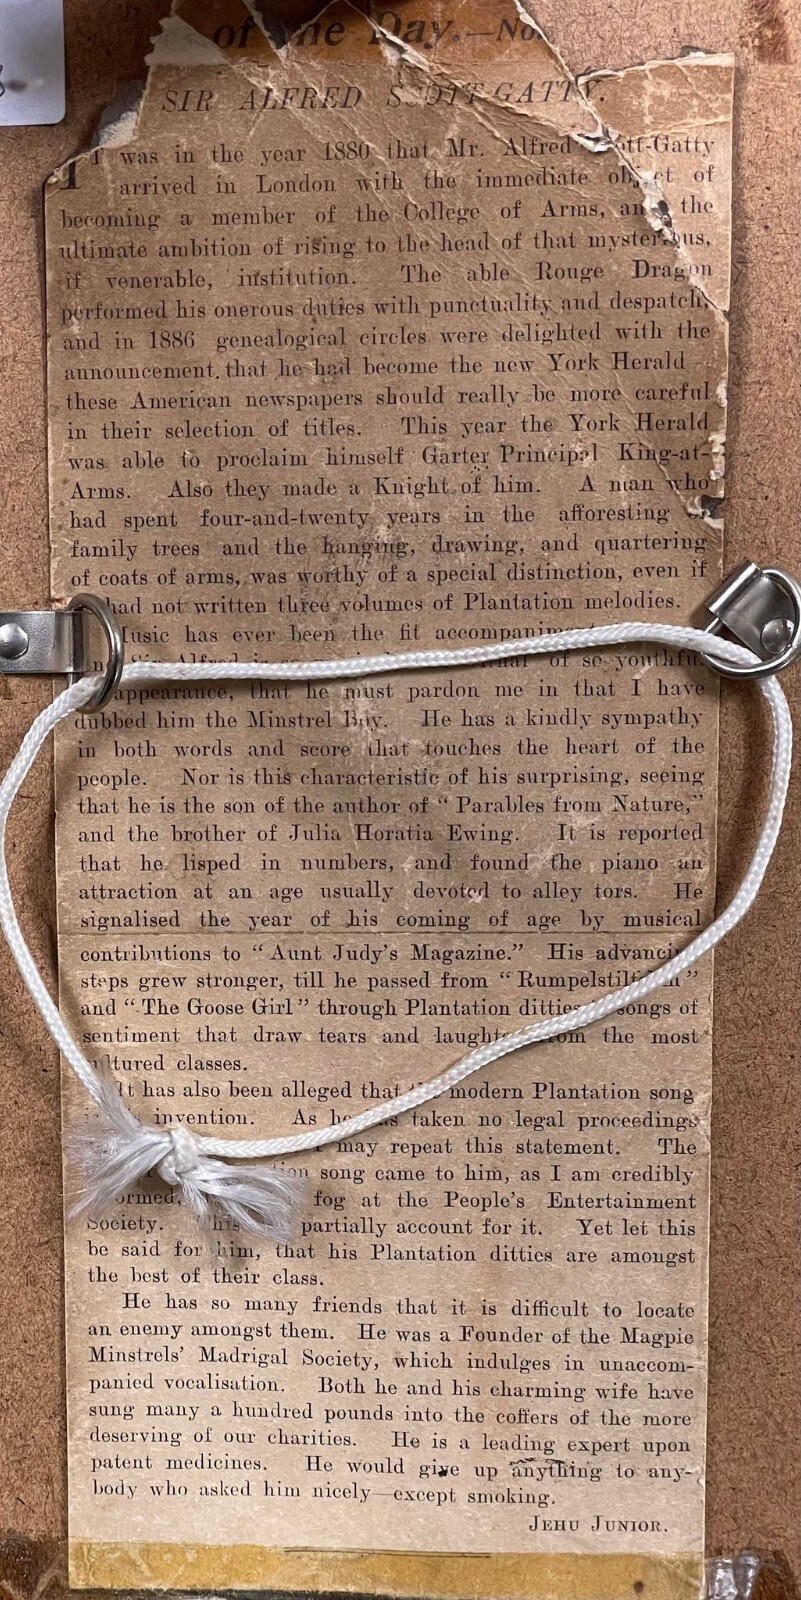 of the Day.—No.
SIR ALFRED SCOTT-GATTY.
IT was in the year 1880 that Mr. Alfred Scott-Gatty
arrived in London with the immediate object of
becoming a member of the College of Arms, and the
ultimate ambition of rising to the head of that mysterious,
if venerable, institution. The able Rouge Dragon
performed his onerous duties with punctuality and despatch,
and in 1886 genealogical circles were delighted with the
announcement that he had become the new York Herald—
these American newspapers should really be more careful
in their selection of titles. This year the York Herald
was able to proclaim himself Garter Principal King-at-
Arms. Also they made a Knight of him. A man who
had spent four-and-twenty years in the afforesting of
family trees and the hanging, drawing, and quartering
of coats of arms, was worthy of a special distinction, even if
had not written three volumes of Plantation melodies.
Music has ever been the fit accompaniment
Sir Alfred is so of so youthful
appearance, that he must pardon me in that I have
dubbed him the Minstrel Boy. He has a kindly sympathy
in both words and score that touches the heart of the
people. Nor is this characteristic of his surprising, seeing
that he is the son of the author of “Parables from Nature,”
and the brother of Julia Horatia Ewing. It is reported
that he lisped in numbers, and found the piano an
attraction at an age usually devoted to alley tors. He
signalised the year of his coming of age by musical
contributions to “Aunt Judy's Magazine.” His advancing
steps grew stronger, till he passed from “Rumpelstiltskin”
and “The Goose Girl” through Plantation ditties songs of
sentiment that draw tears and laughter from the most
cultured classes.
It has also been alleged that the modern Plantation song
invention. As he has taken no legal proceedings
may repeat this statement. The
song came to him, as I am credibly
informed, fog at the People's Entertainment
Society. This partially account for it. Yet let this
be said for him, that his Plantation ditties are amongst
the best of their class.
He has so many friends that it is difficult to locate
an enemy amongst them. He was a Founder of the Magpie
Minstrels' Madrigal Society, which indulges in unaccom-
panied vocalisation. Both he and his charming wife have
sung many a hundred pounds into the coffers of the more
deserving of our charities. He is a leading expert upon
patent medicines. He would give up anything to any-
body who asked him nicely—except smoking.
JEHU JUNIOR.